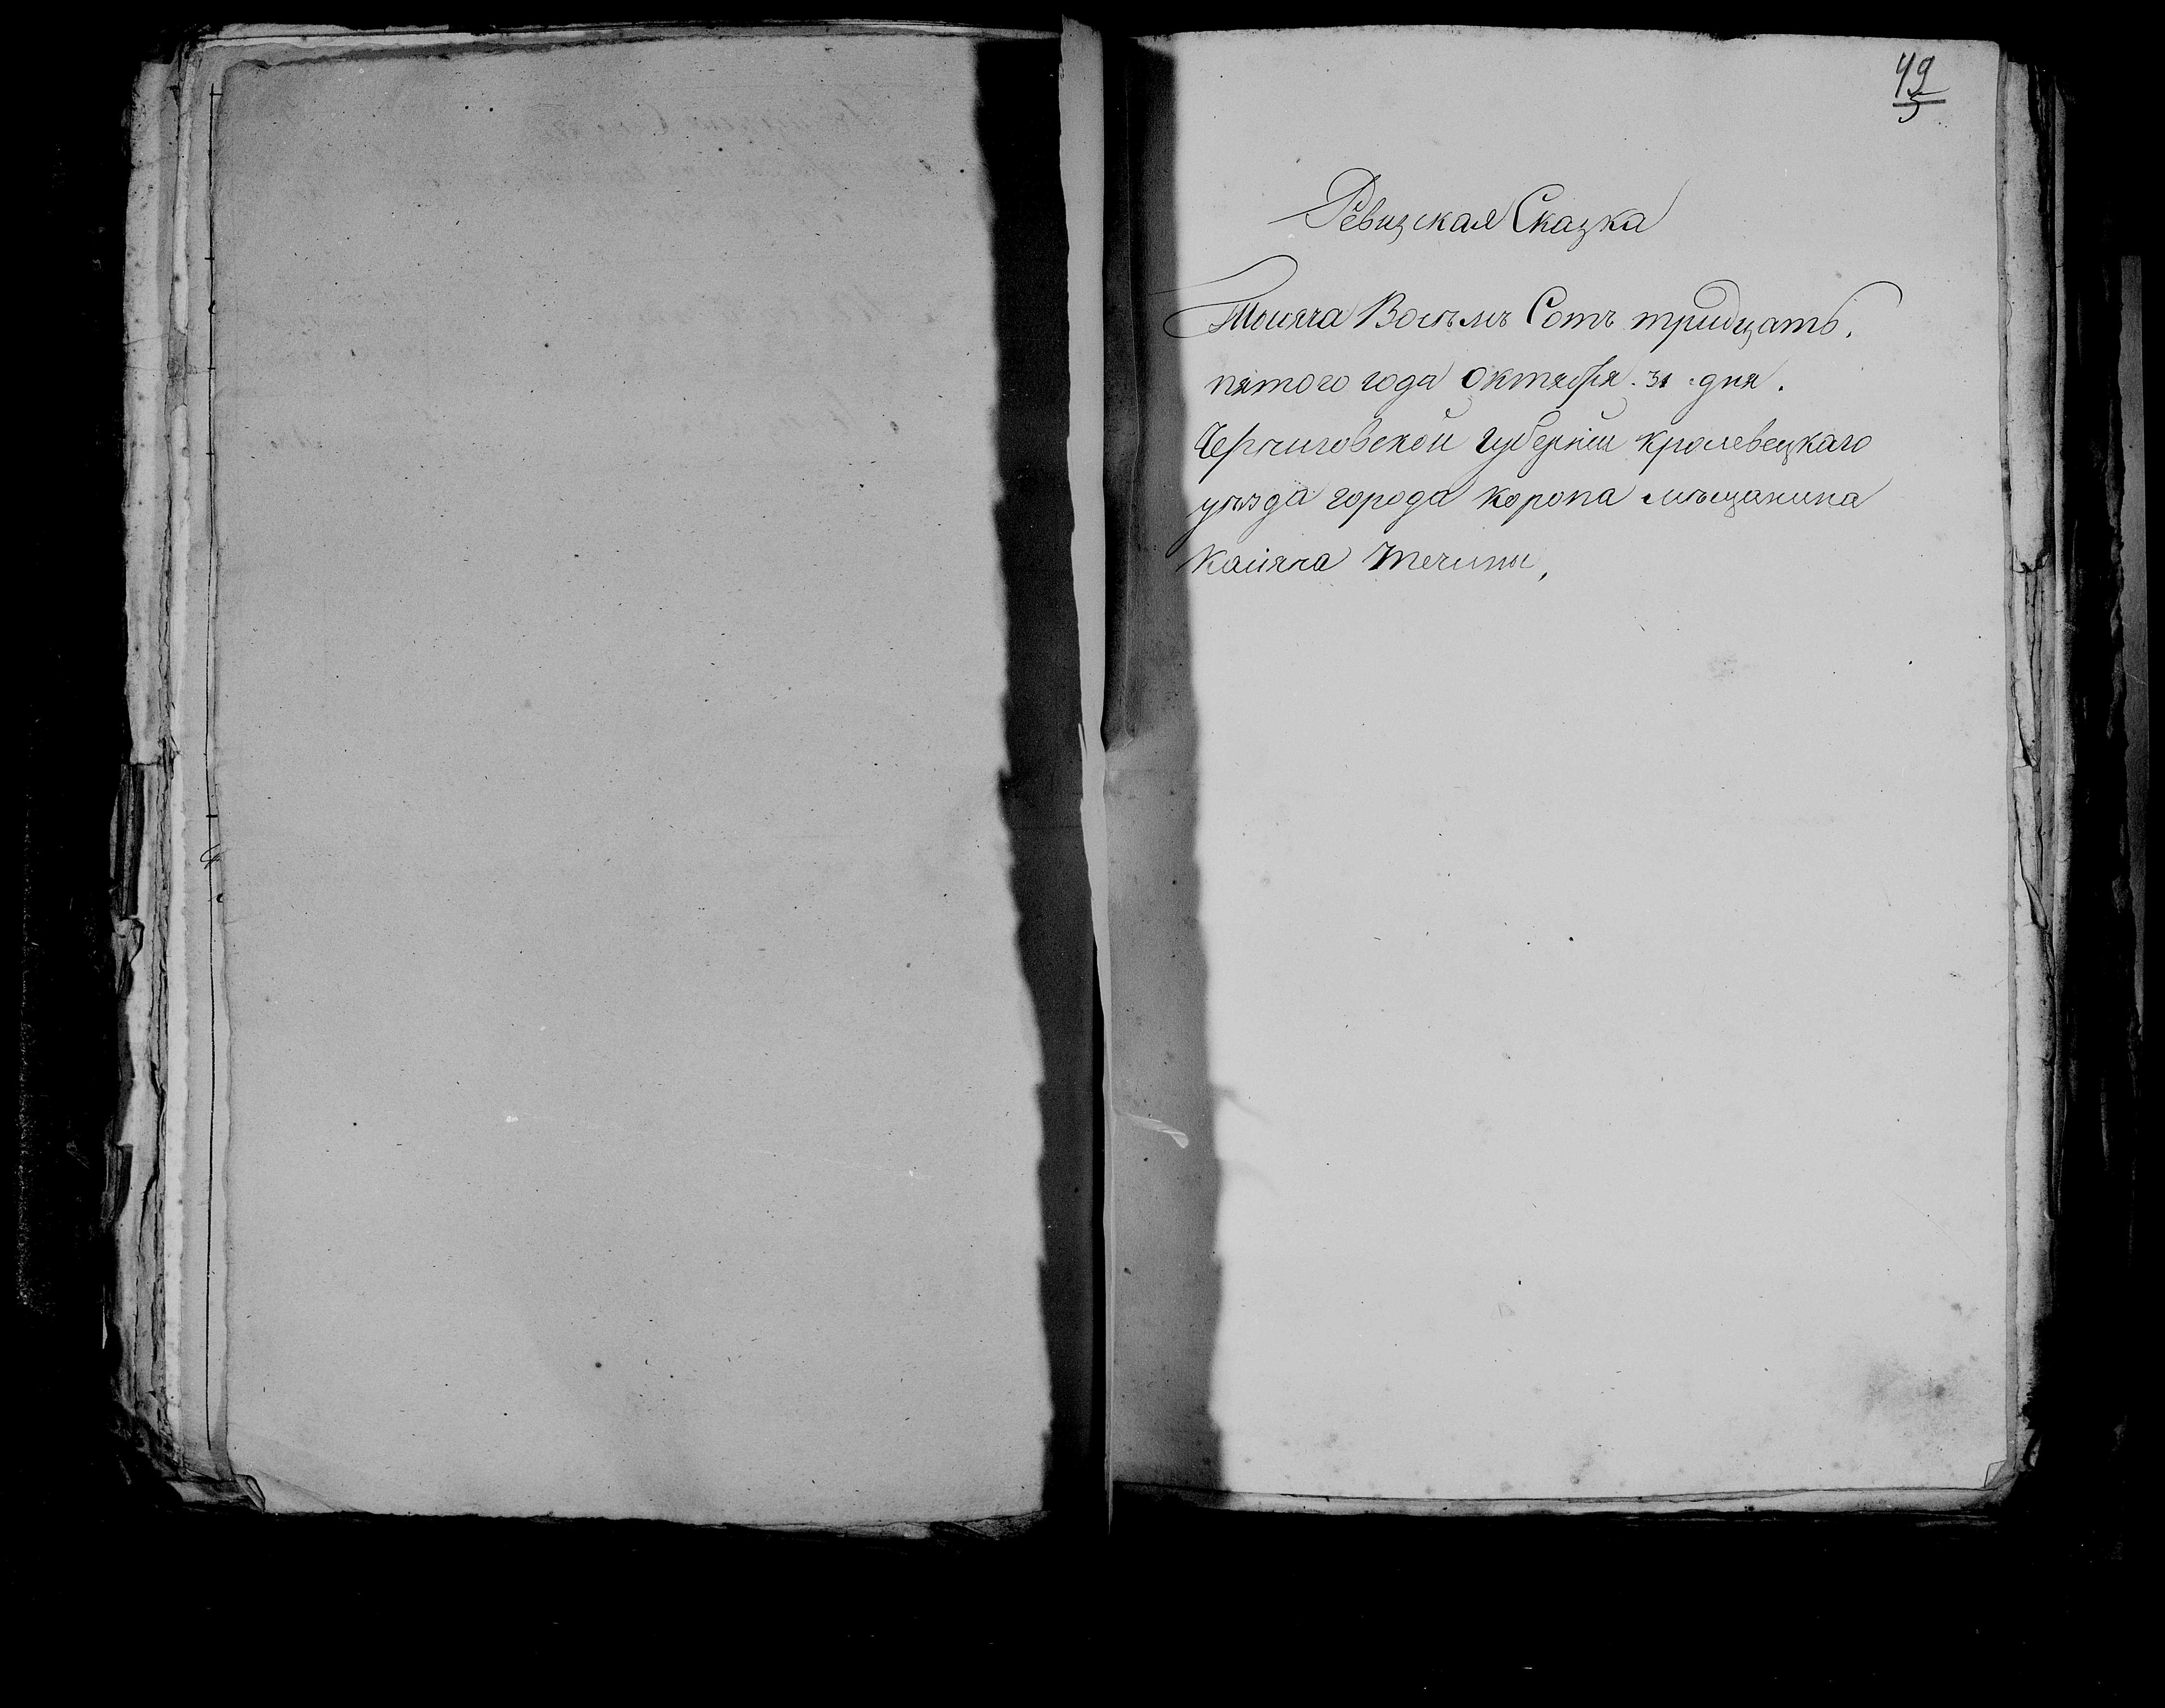 49
5
Ревизская Сказка
Тысяча Восъмъ Сотъ тридцать.
пятого года Октября. 31 дня.
Черниговской губерніи кролевецкаго
уѣзда города Коропа мѣщанина